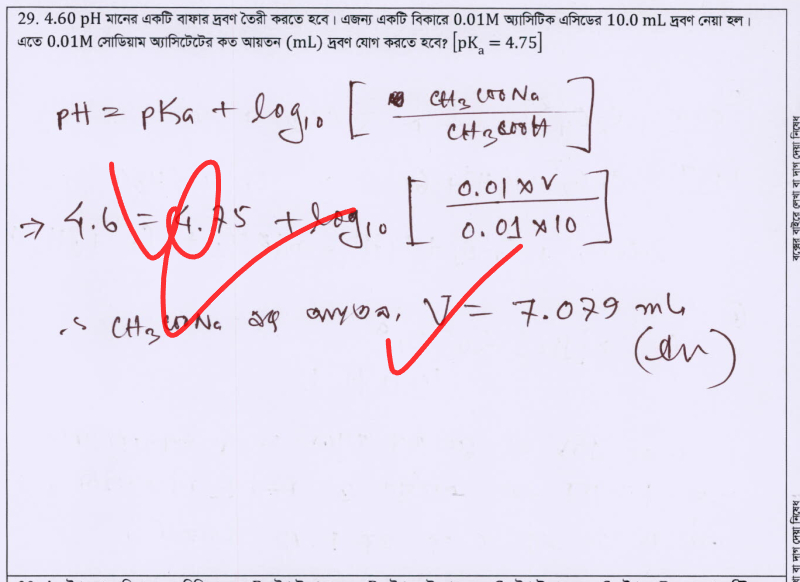 29. 4.60 pH মানের একটি বাফার দ্রবণ তৈরী করতে হবে। এজন্য একটি বিকারে 0.01M অ্যাসিটিক এসিডের 10.0 mL দ্রবণ নেয়া হল।
এতে 0.01M সোডিয়াম অ্যাসিটেটের কত আয়তন (mL) দ্রবণ যোগ করতে হবে? [pKₐ = 4.75]
pH = pKa + log₁₀ [ CH₃COONa / CH₃COOH ]
⇒ 4.6 = 4.75 + log₁₀ [ 0.01 × V / 0.01 × 10 ]
∴ CH₃COONa এর আয়তন, V = 7.079 mL
(Ans)
বক্সের বাইরে লেখা বা দাগ দেয়া নিষেধ
বা দাগ দেয়া নিষেধ